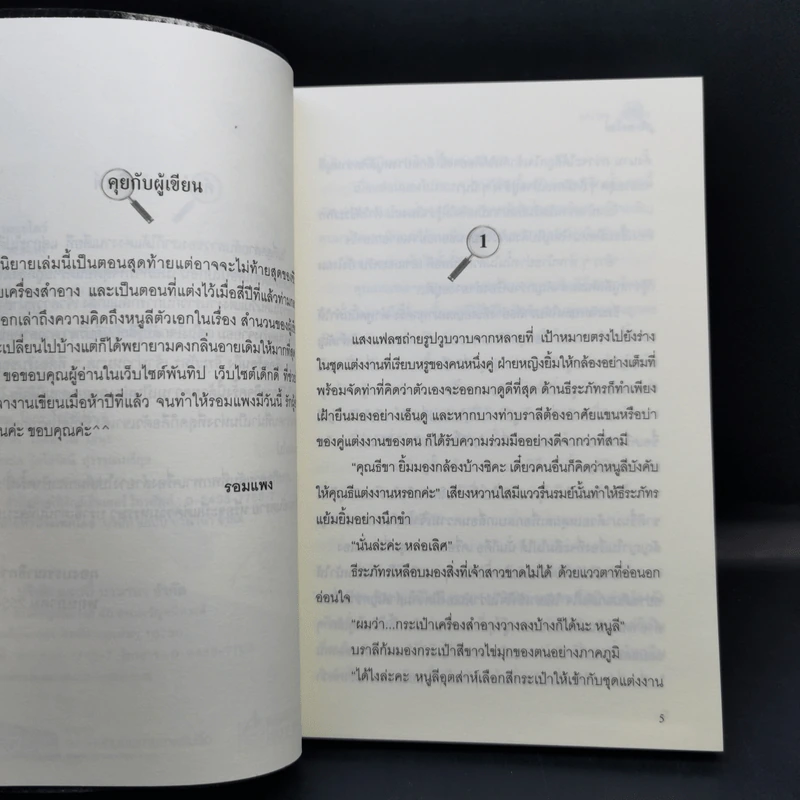 คุยกับผู้เขียน
นิยายเล่มนี้เป็นตอนสุดท้ายแต่อาจจะไม่ท้ายสุดของ
เครื่องสำอาง และเป็นตอนที่แต่งไว้เมื่อสี่ปีที่แล้ว
อกเล่าถึงความคิดถึงหนูลีตัวเอกในเรื่อง สำนวนของ
ะเปลี่ยนไปบ้างแต่ก็ได้พยายามคงกลิ่นอายเดิมให้มากที่
ขอขอบคุณผู้อ่านในเว็บไซต์พันทิป เว็บไซต์เด็กดี ที่
งานเขียนเมื่อห้าปีที่แล้ว จนทำให้รอมแพงมีวันนี้
นค่ะ ขอบคุณค่ะ^^
รอมแพง
1
แสงแฟลชถ่ายรูปวูบวาบจากหลายที่ เป้าหมายตรงไปยังร่าง
ในชุดแต่งงานที่เรียบหรูของคนหนึ่งคู่ ฝ่ายหญิงยิ้มให้กล้องอย่างเต็มที่
พร้อมจัดท่าที่คิดว่าตัวเองจะออกมาดูดีที่สุด ด้านธีระภัทรก็ทำเพียง
เฝ้ายืนมองอย่างเอ็นดู และหากบางท่าบราลีต้องอาศัยแขนหรือบ่า
ของคู่แต่งงานของตน ก็ได้รับความร่วมมืออย่างดีจากว่าที่สามี
"คุณธีขา ยิ้มมองกล้องบ้างซิคะ เดี๋ยวคนอื่นก็คิดว่าหนูลีบังคับ
ให้คุณธีแต่งงานหรอกค่ะ" เสียงหวานใสมีแววรื่นรมย์นั้นทำให้ธีระภัทร
แย้มยิ้มอย่างนึกขำ
"นั่นล่ะค่ะ หล่อเลิศ"
ธีระภัทรเหลือบมองสิ่งที่เจ้าสาวขาดไม่ได้ ด้วยแววตาที่อ่อนอก
อ่อนใจ
"ผมว่า...กระเป๋าเครื่องสำอางวางลงบ้างก็ได้นะ หนูลี"
บราลีก้มมองกระเป๋าสีขาวไข่มุกของตนอย่างภาคภูมิ
"ได้ไงล่ะคะ หนูลีอุตส่าห์เลือกสีกระเป๋าให้เข้ากับชุดแต่งงาน
5